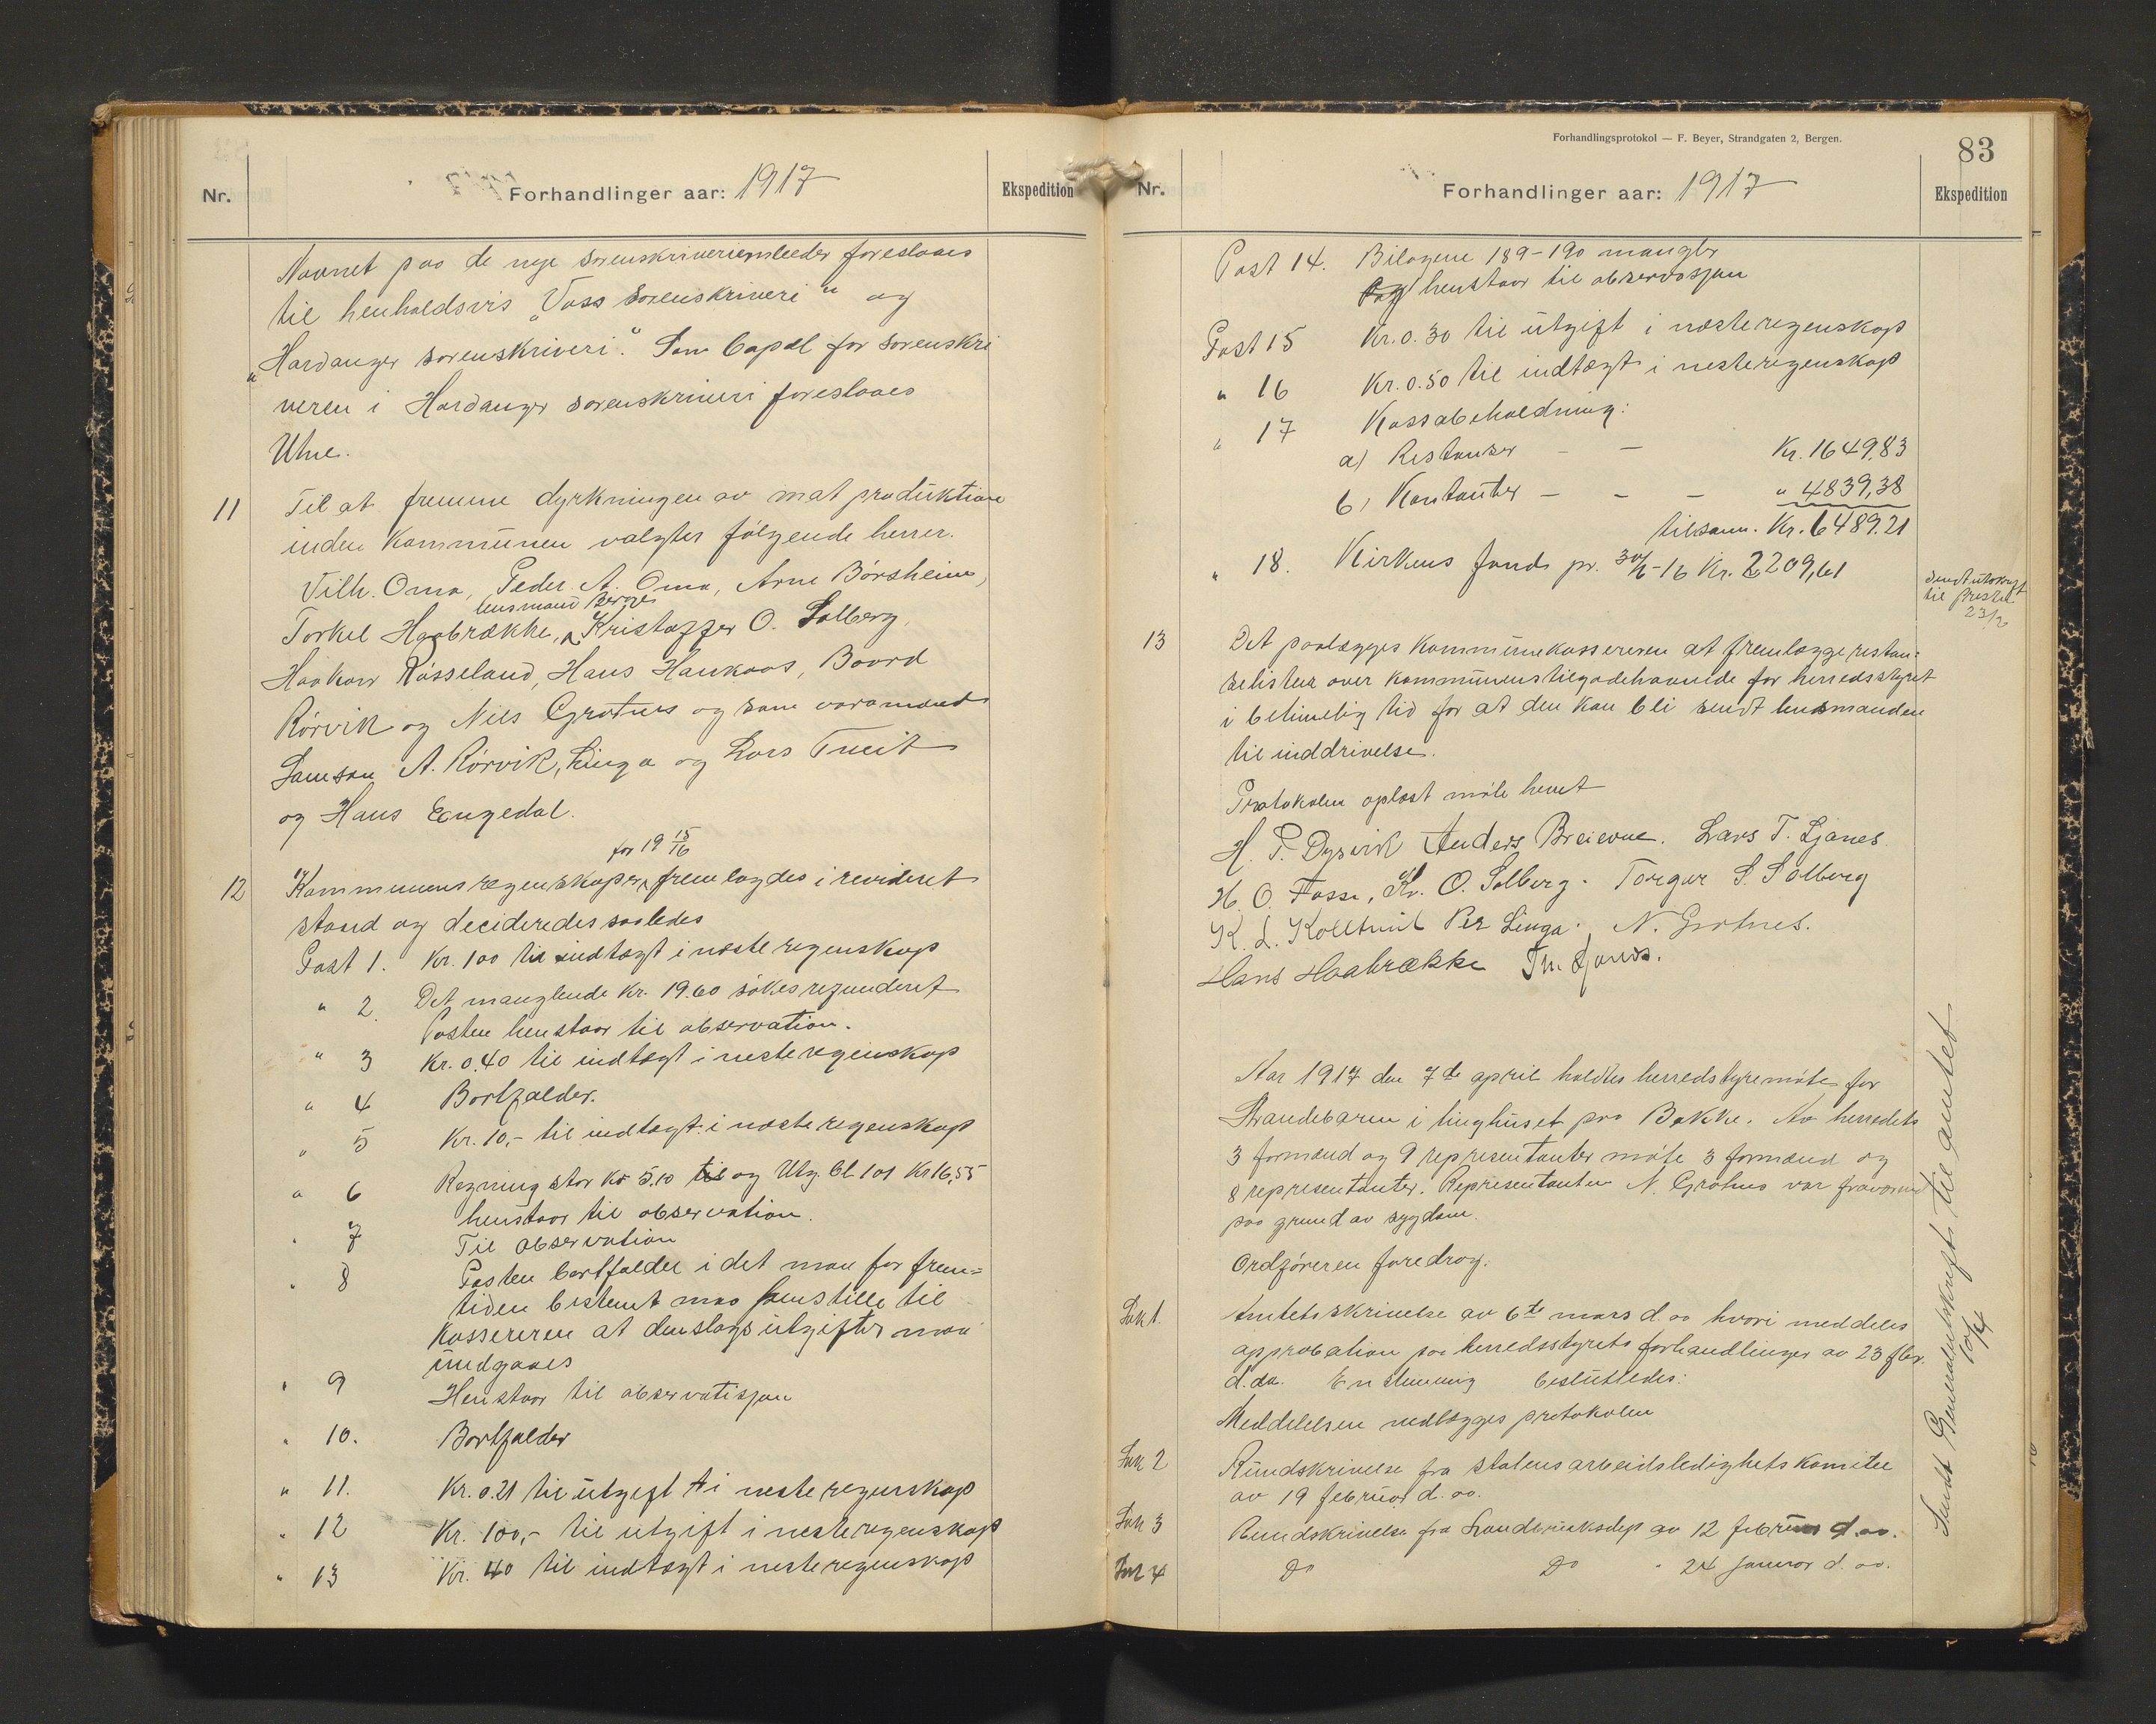 Nr.
Forhandlinger aar: 1917
Ekspedition
Navnet paa de nye sorenskriverembeder foreslaaes
til henholdsvis „Voss sorenskriveri" og
„Hardanger sorenskriveri". Som bopæl for sorenskri
veren i Hardanger sorenskriveri foreslaaes
Utne.
11 Til at fremme dyrkningen av mat produktion
inden kommunen valgtes følgende herrer.
Vilh. Oma, Peder A. Oma, Arne Börsheim,
lensmand Berge
Torkel Haabrække, Kristoffer O. Solberg,
Haakon Rösseland, Hans Haukaas, Baard
Rörvik og Nils Grotnes og som varamænd
Samson A. Rörvik, Linga og Lars Tveit
og Hans Engedal.
for 19 15/16
12 Kommunens regnskaper fremlagdes i revideret
stand og decideredes saaledes
Post 1. Kr. 100 til indtægt i næste regnskap
" 2. Det manglende Kr. 19.60 søkes refunderet
Posten henstaar til observation.
" 3 Kr. 0.40 til indtægt i neste regnskap
" 4 Bortfalder.
" 5 Kr. 10,- til indtægt i næste regnskap
" 6 Regning stor Kr 5.10 til og Utg. bl 101 Kr 16,55
henstaar til observation.
" 7 Til observation
" 8 Posten bortfalder i det man for frem=
tiden bestemt maa henstille til
kassereren at denslags utgifter maa
undgaaes
" 9 Henstaar til observatisjon
" 10. Bortfalder
" 11. Kr. 0.21 til utgift i neste regnskap
" 12 Kr. 100,- til utgift i neste regnskap
" 13 Kr. 40 til indtægt i neste regnskap
Forhandlingsprotokol — F. Beyer, Strandgaten 2, Bergen.
83
Nr.
Forhandlinger aar: 1917
Ekspedition
Post 14. Bilagene 189-190 mangler
og henstaar til observasjon
Post 15 Kr. 0.30 til utgift i næste regnskap
" 16 Kr. 0.50 til indtægt i neste regnskap
" 17 Kassabeholdning:
a) Restanser - - Kr. 1649,83
b) Kontanter - - - " 4839,38
tilsam. Kr. 6489.21
" 18. Kirkens fond pr. 30/6-16 Kr. 2209,61
Sendt utskrift
til presten
23/2
13 Det paalægges kommunekassereren at fremlægge restan=
selister over kommunens tilgodehavende for herredsstyret
i betimelig tid for at den kan bli sendt lensmanden
til inddrivelse.
Protokolen oplæst møte hævet
H. P. Dysvik Anders Breievne. Lars T. Ljones
H. O. Fosse, Kr. O. Solberg. Torger S. Solberg
K. L. Kolltveit Per Linga. N. Grotnes.
Hans Haabrække Th. Ljones.
Aar 1917 den 7de april holdtes herredstyremøte for
Strandebarm i tinghuset paa Bakke. Av herredets
3 formænd og 9 representanter møtte 3 formænd og
8 representanter. Representanten N. Grotnes var fraværende
paa grund av sygdom.
Ordføreren foredrog.
Sak 1. Amtets skrivelse av 6te mars d. aa hvori meddeles
approbation paa herredsstyrets forhandlinger av 23 fbr.
d. aa. Enstemmig besluttedes:
Meddelelsen vedlægges protokolen
Sak 2 Rundskrivelse fra statens arbeidsledighets komitee
av 19 februar d. aa.
Sak 3 Rundskrivelse fra Landbruksdep av 12 februar d. aa.
Sak 4 Do Do " 24 januar d. aa.
Sendt Genpartutskrift til amtet
10/4